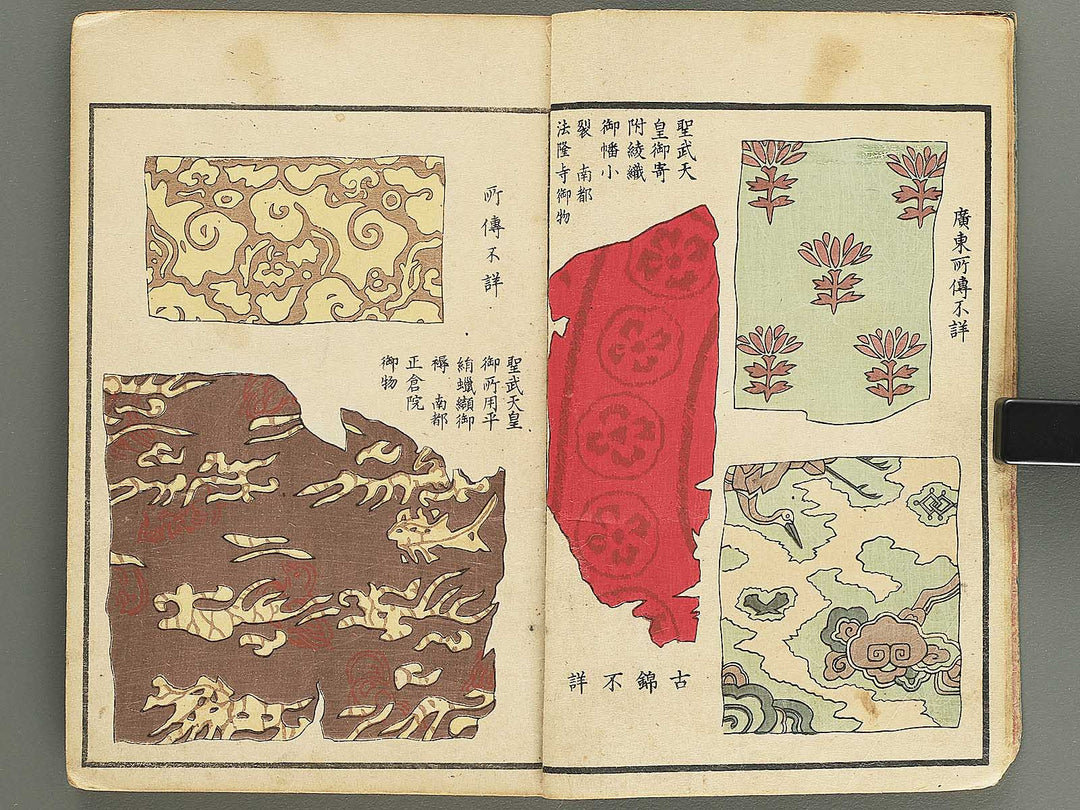 廣東所傳不詳
聖武天
皇御寄
附綾織
御幡小
裂 南都
法隆寺御物
古錦不詳
所傳不詳
聖武天皇
御所用平
絹蠟纈御
褥 南都
正倉院
御物